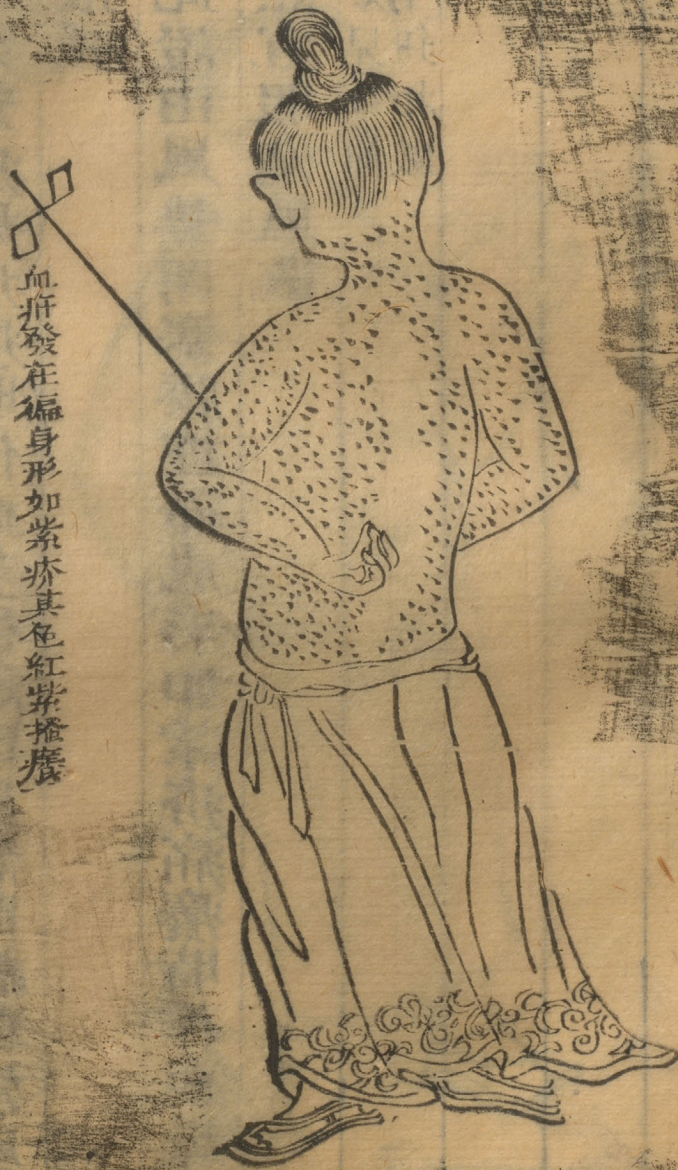 血疳發在徧身形如紫疥其色紅紫搔癢